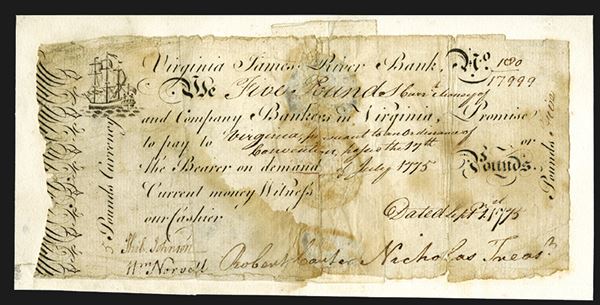 Virginia James River Bank, No. 180
17999
We Five Pound Curr. Money of
and Company Bankers in Virginia, Promise
to pay to Virginia, pursuant to an Ordinance of or
Convention, pass'd the 17th
the Bearer on demand July 1775 Pounds.
Current money Witness
our Cashier Dated Sept. 1st 1775
Phil Johnson
Wm Norvell Robert Carter Nicholas Treasr
Pounds Currency
Pounds Five